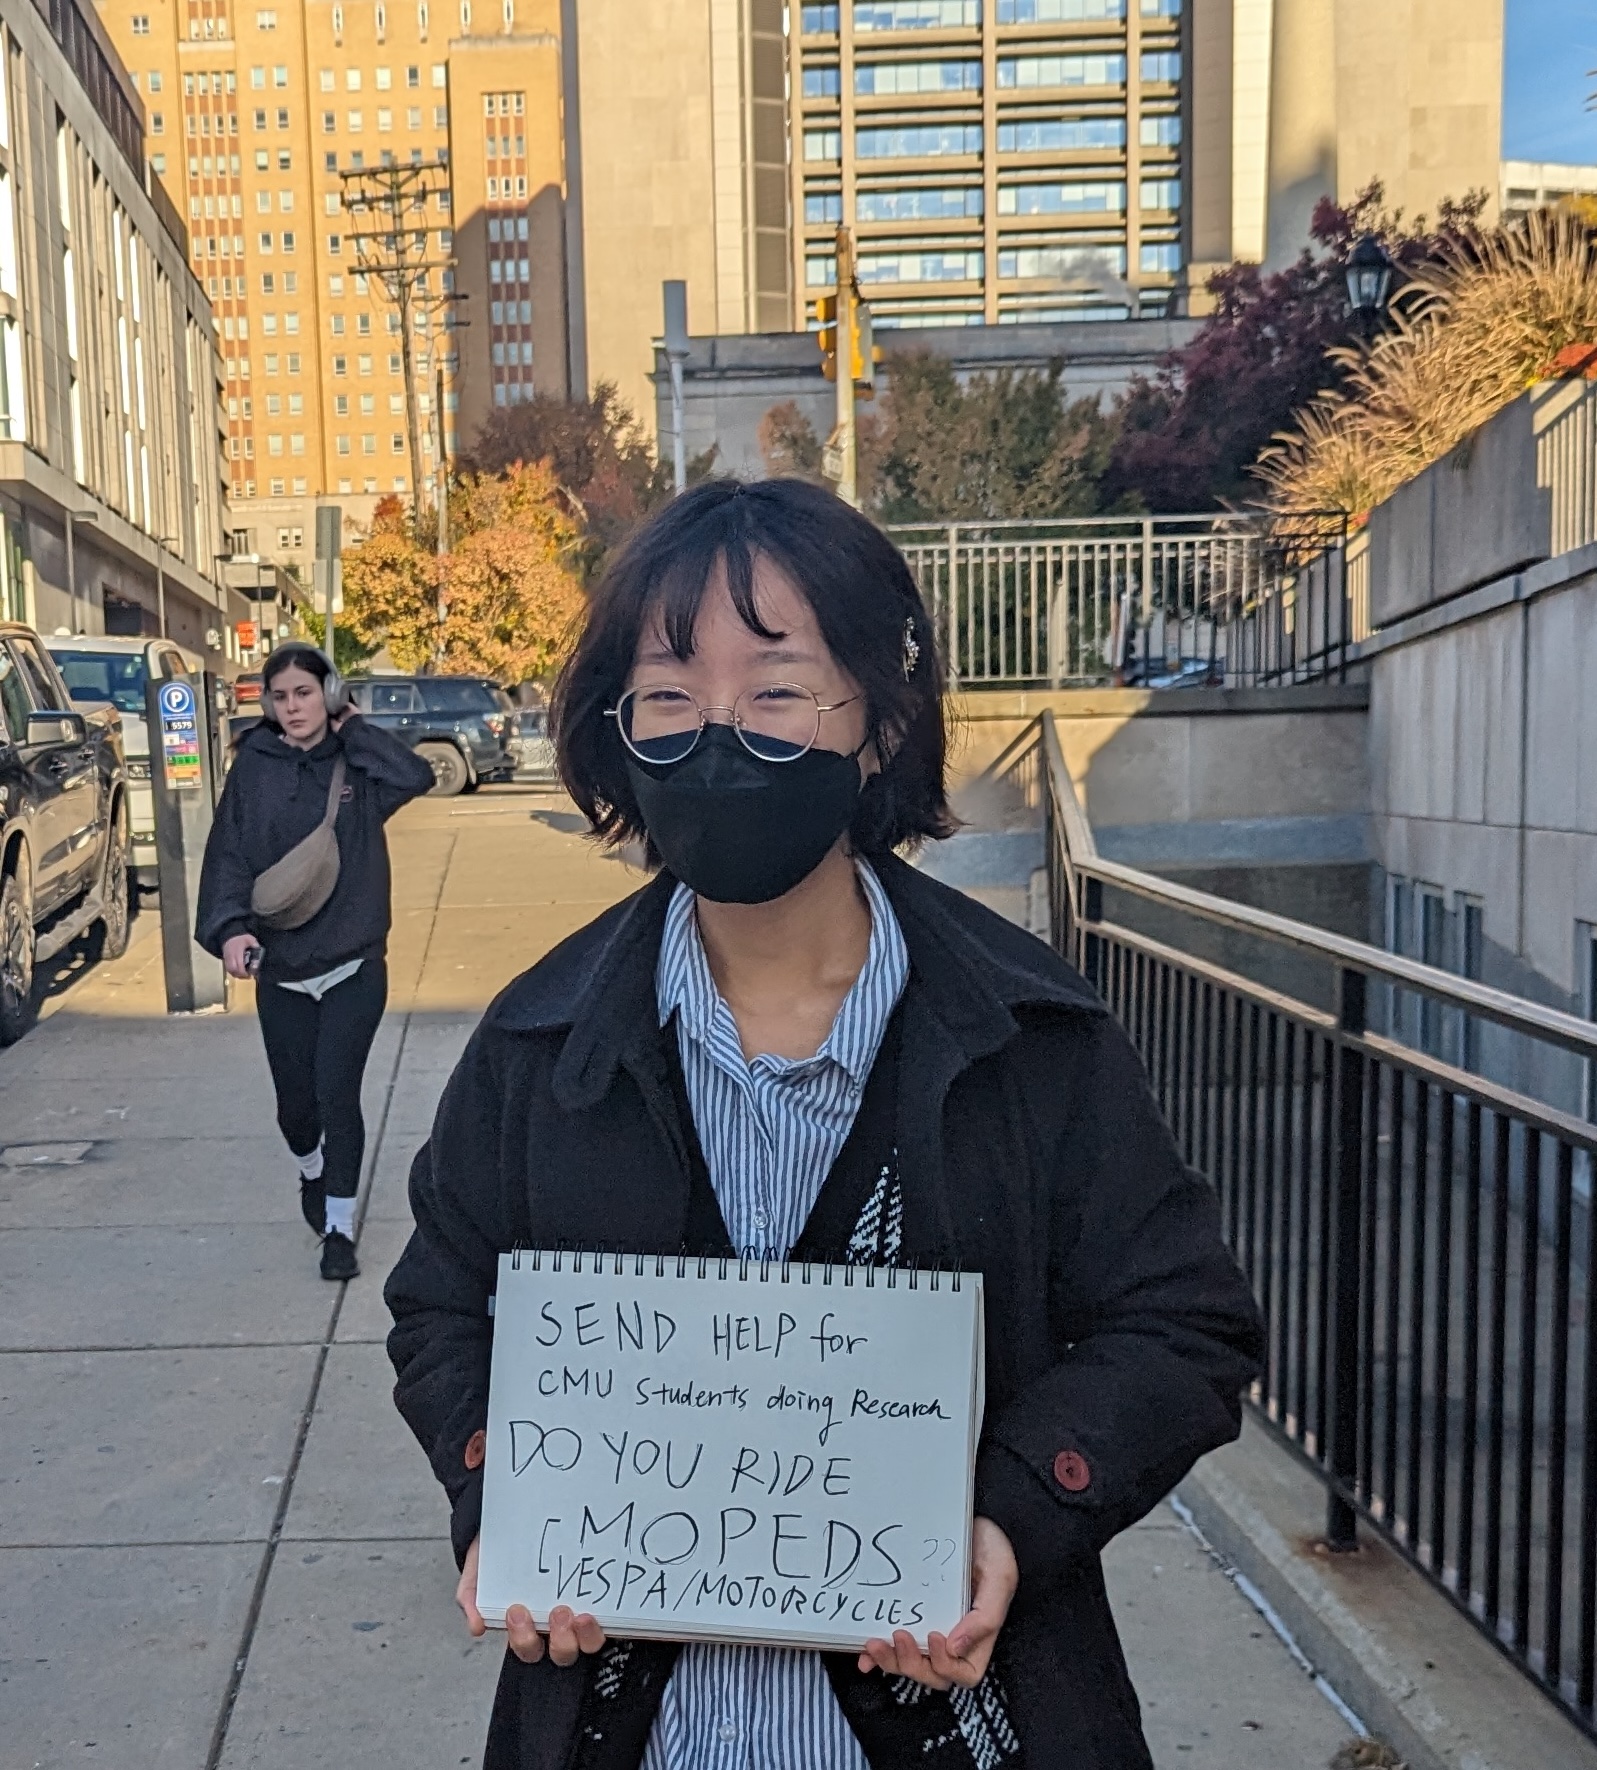 P
5579
SEND HELP for
CMU Students doing Research
DO YOU RIDE
[MOPEDS??
VESPA/MOTORCYCLES